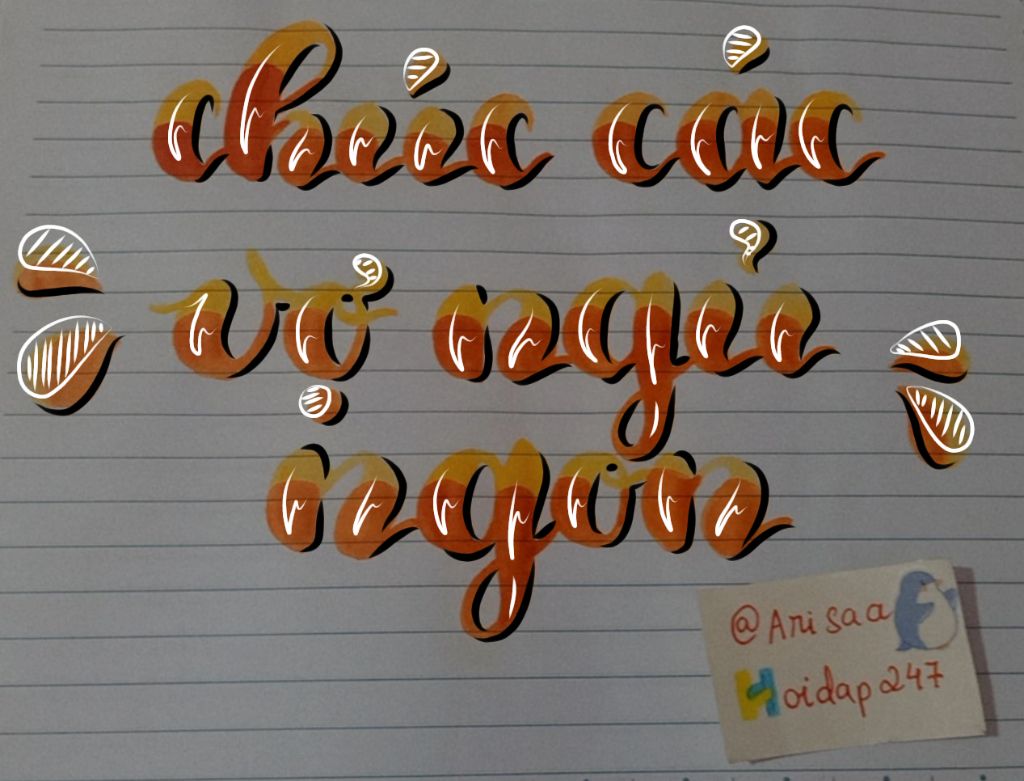 chúc các
vợ ngủ
ngon
@Arisaa
Hoidap247